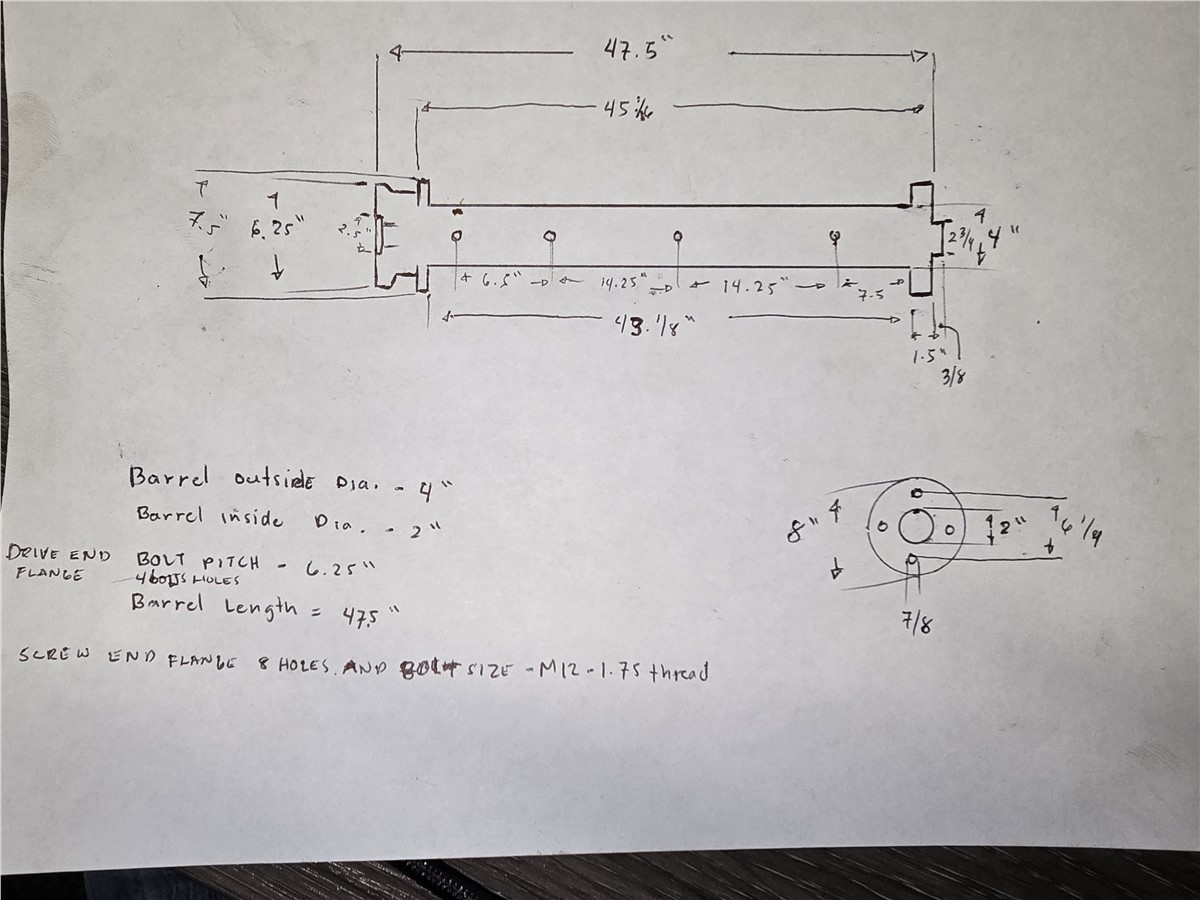 47.5"
7.5" 6.25" 2.5" 2 3/4 4"
6.5" 14.25" 14.25" 7.5
43.1/8"
1.5"
3/8
Barrel outside Dia. - 4"
Barrel inside Dia. - 2"
DRIVE END FLANGE BOLT PITCH - 6.25"
4 bolts HOLES
Barrel Length = 47.5"
8" 2" 6 1/4
7/8
SCREW END FLANGE 8 HOLES. AND BOLT SIZE - M12-1.75 thread